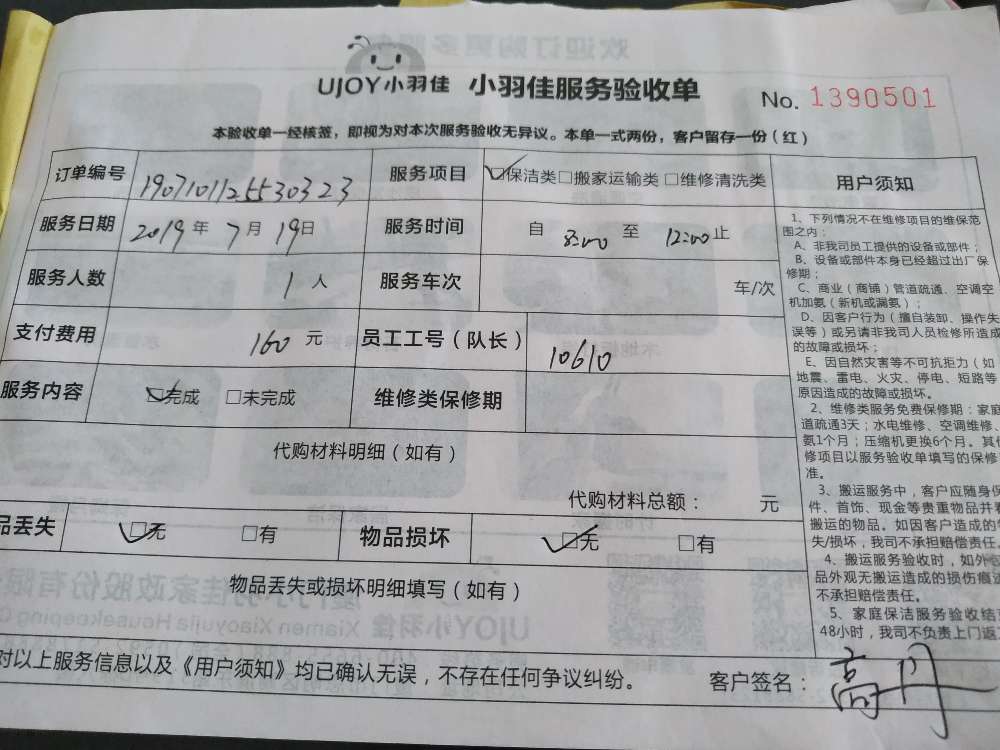 UJOY小羽佳 小羽佳服务验收单 No. 1390501
本验收单一经核签，即视为对本次服务验收无异议。本单一式两份，客户留存一份（红）
订单编号 1907101125530323 服务项目 ☑保洁类□搬家运输类□维修清洗类
服务日期 2019年7月19日 服务时间 自 8:00 至 12:00止
服务人数 1人 服务车次 车/次
支付费用 160元 员工工号（队长） 10610
服务内容 ☑完成 □未完成 维修类保修期
代购材料明细（如有）
代购材料总额： 元
品丢失 ☑无 □有 物品损坏 ☑无 □有
物品丢失或损坏明细填写（如有）
对以上服务信息以及《用户须知》均已确认无误，不存在任何争议纠纷。 客户签名：高丹
用户须知
1、下列情况不在维修项目的维保范
围之内：
A、非我司员工提供的设备或部件；
B、设备或部件本身已经超过出厂保
修期；
C、商业（商铺）管道疏通、空调空
机加氨（新机或漏氨）；
D、因客户行为（擅自装卸、操作失
误等）或另请非我司人员检修所造成
的故障或损坏；
E、因自然灾害等不可抗拒力（如
地震、雷电、火灾、停电、短路等
原因造成的故障或损坏。
2、维修类服务免费保修期：家庭
道疏通3天；水电维修、空调维修、
氨1个月；压缩机更换6个月。其他
修项目以服务验收单填写的保修
准。
3、搬运服务中，客户应随身保
件、首饰、现金等贵重物品并看
搬运的物品。如因客户造成的
失/损坏，我司不承担赔偿责任。
4、搬运服务验收时，如外包
品外观无搬运造成的损伤痕迹
不承担赔偿责任。
5、家庭保洁服务验收结
48小时，我司不负责上门返